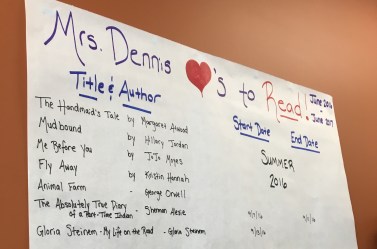 Mrs. Dennis ♥'s to Read!
June 2016
- June 2017
Title & Author
Start Date
End Date
The Handmaid's Tale by Margaret Atwood
Mudbound by Hillary Jordan
Me Before You by JoJo Moyes
Fly Away by Kristin Hannah
Animal Farm - George Orwell
SUMMER
2016
The Absolutely True Diary
of a Part-Time Indian - Sherman Alexie
Gloria Steinem - My Life on the Road - Gloria Steinem